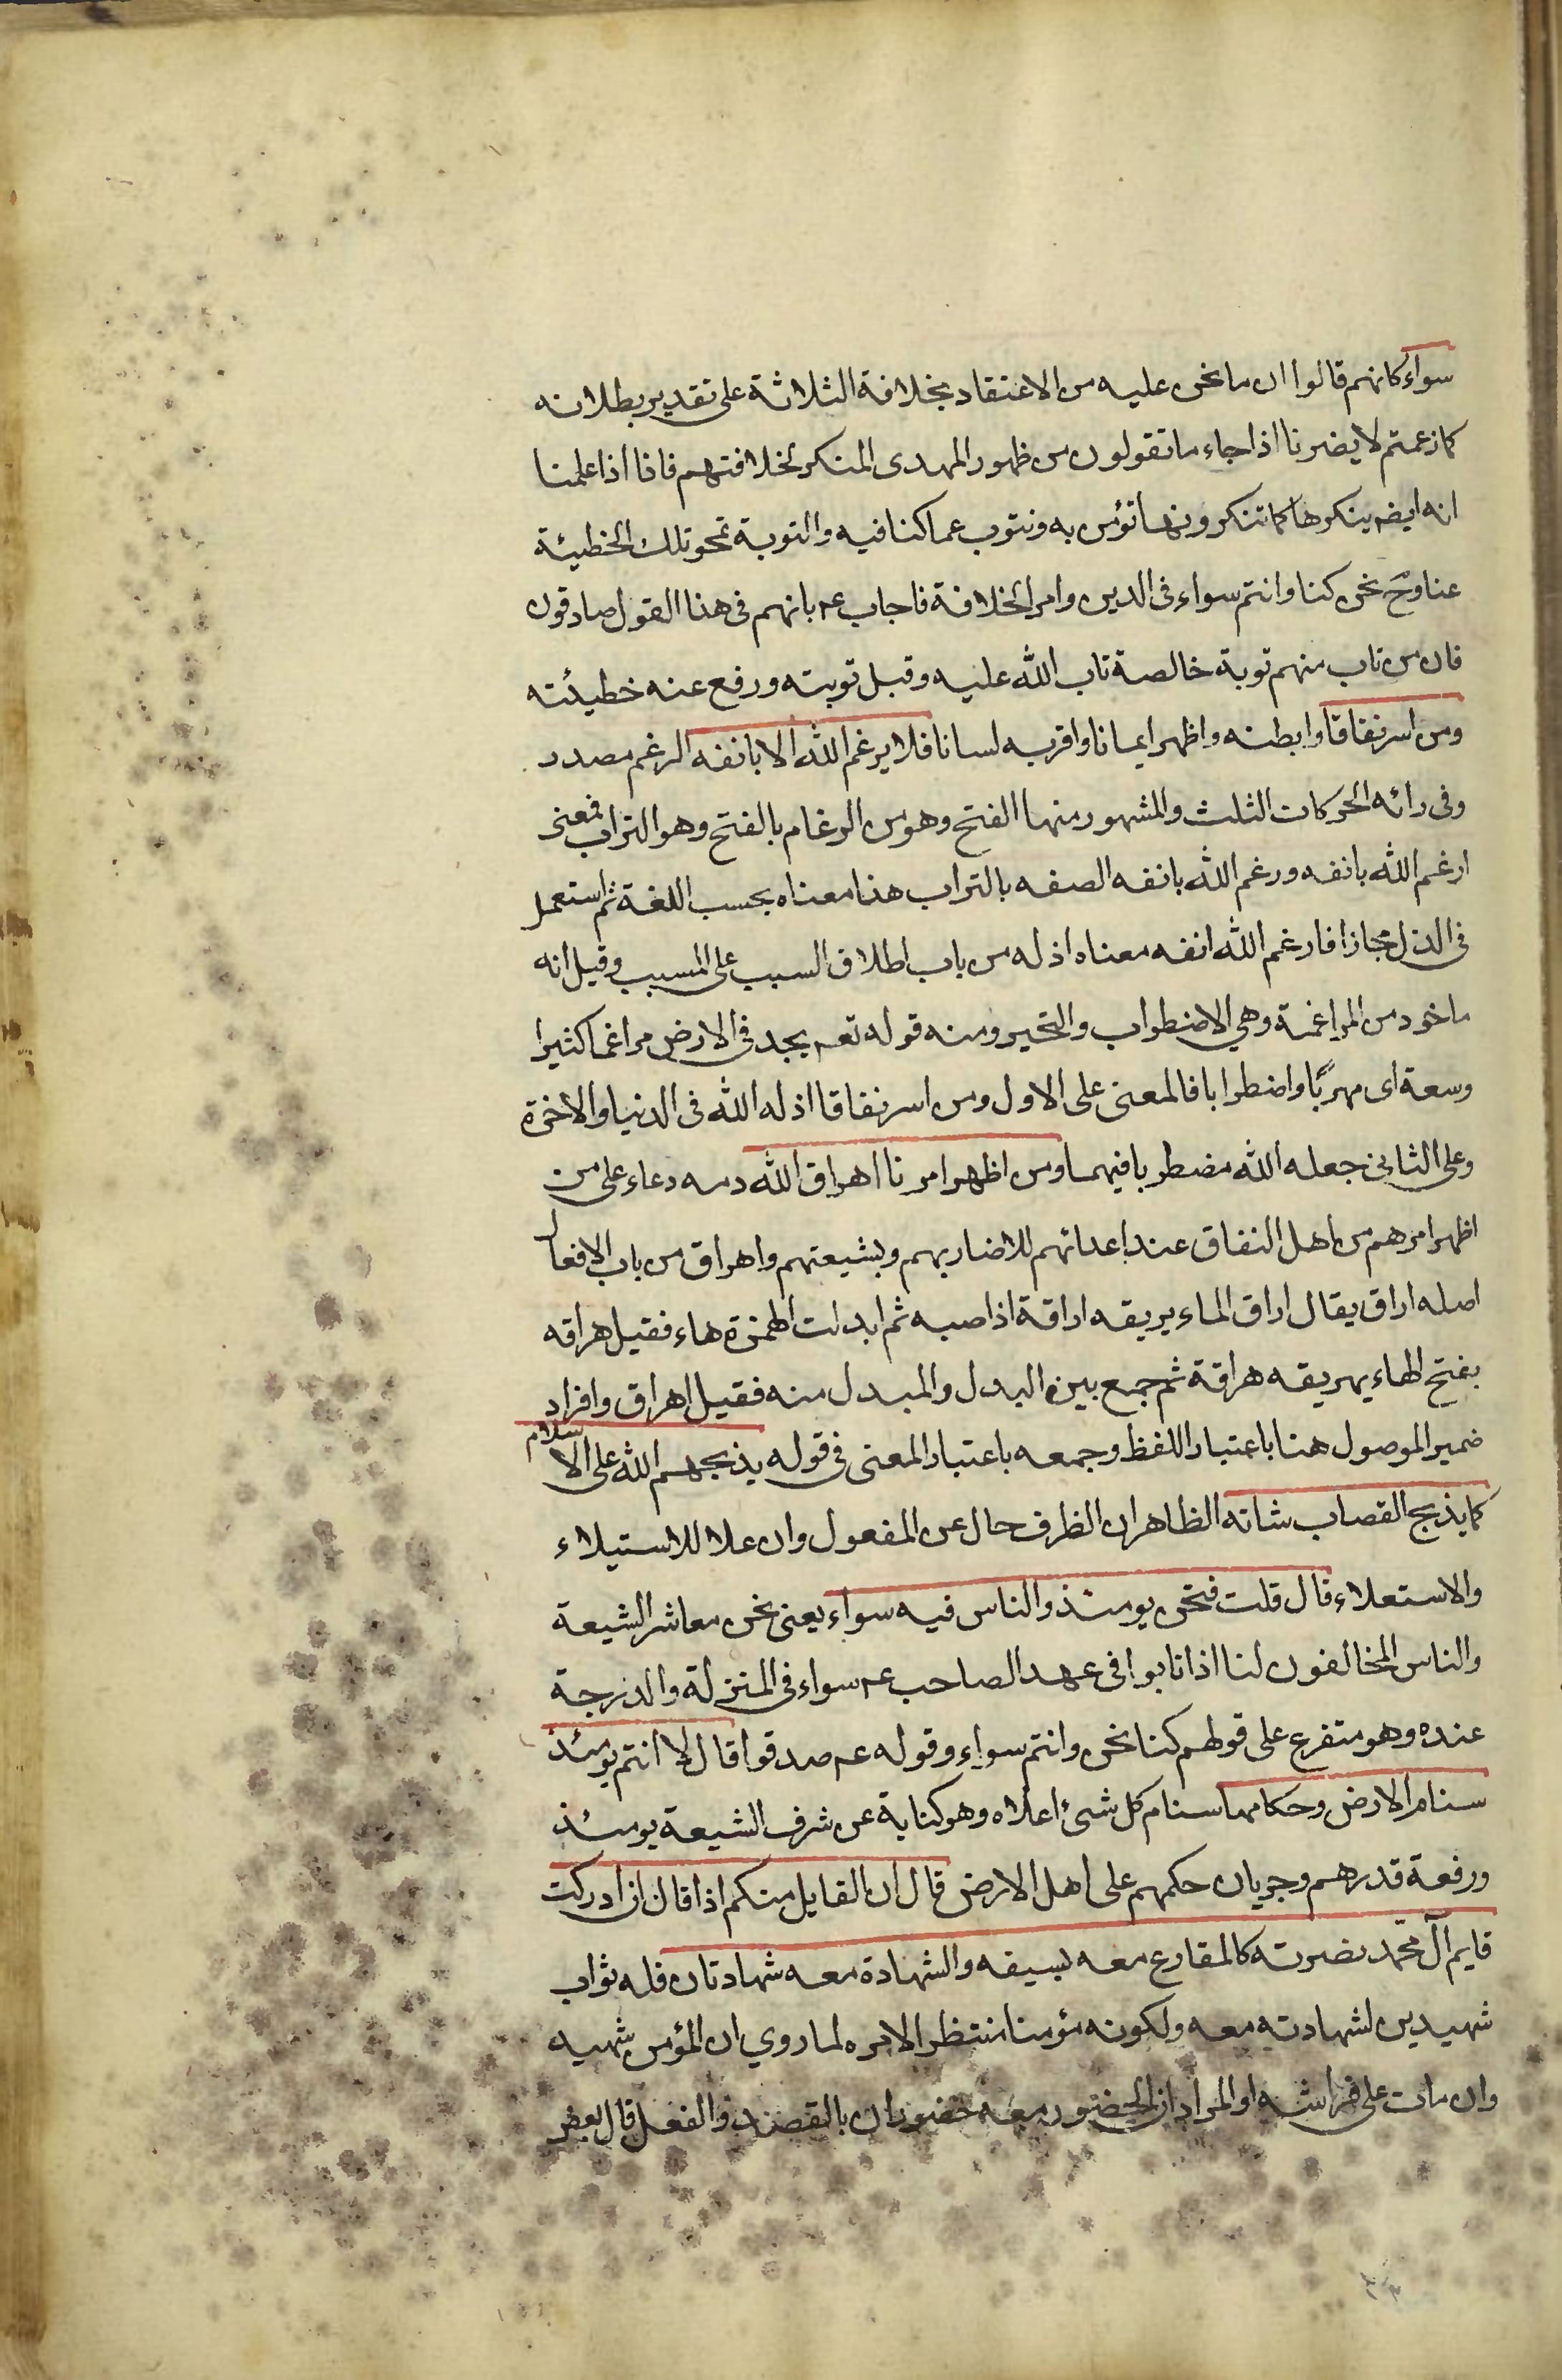 سواء كانهم قالوا ان ما نحن عليه من الاعتقاد بخلافة الثلاثة على تقدير بطلانه
كما زعمتم لا يضرنا اذا جاء ما تقولون من ظهور المهدى المنكر لخلافتهم فانا اذا علمنا
انه ايضم ينكرها كما تنكرونها نؤمن به ونتوب عما كنا فيه والتوبة تمحو تلك الخطيئة
عنا وح نحن كنا وانتم سواء فى الدين وامر الخلافة فاجاب عم بانهم فى هذا القول صادقون
فان من تاب منهم توبة خالصة تاب الله عليه وقبل توبته ورفع عنه خطيئته
ومن اسر نفاقا وابطنه واظهر ايمانا واقر به لسانا فلا يرغم الله الا بانفه الرغم مصدر
وفى رائه الحركات الثلث والمشهور منها الفتح وهو من الرغام بالفتح وهو التراب فمعنى
ارغم الله بانفه ورغم الله بانفه الصقه بالتراب هذا معناه بحسب اللغة ثم استعمل
فى الذل مجازا فارغم الله انفه معناه اذله من باب اطلاق السبب على المسبب وقيل انه
ماخوذ من المراغمة وهي الاضطراب والتحير ومنه قوله تعم يجد فى الارض مراغما كثيرا
وسعة اى مهربًا واضطرابا فالمعنى على الاول ومن اسر نفاقا اذله الله فى الدنيا والاخرة
وعلى الثانى جعله الله مضطربا فيهما ومن اظهر امرنا اهراق الله دمه دعاء على من
اظهر امرهم من اهل النفاق عند اعدائهم للاضرار بهم وبشيعتهم واهراق من باب الافعال
اصله اراق يقال اراق الماء يريقه اراقة اذا صبه ثم ابدلت الهمزة هاء فقيل هراقه
بفتح الهاء يهريقه هراقة ثم جمع بين البدل والمبدل منه فقيل اهراق وافراد
ضمير الموصول هنا باعتبار اللفظ وجمعه باعتبار المعنى فى قوله يذبحهم الله على الاسلام
كما يذبح القصاب شاته الظاهر ان الظرف حال عن المفعول وان علا للاستيلاء
والاستعلاء قال قلت فنحن يومئذ والناس فيه سواء يعنى نحن معاشر الشيعة
والناس المخالفون لنا اذا تابوا فى عهد الصاحب عم سواء فى المنزلة والدرجة
عنده وهو متفرع على قولهم كنا نحن وانتم سواء وقوله عم صدقوا قال لا انتم يومئذ
سنام الارض وحكامها سنام كل شىء اعلاه وهو كناية عن شرف الشيعة يومئذ
ورفعة قدرهم وجريان حكمهم على اهل الارض قال ان القايل منكم اذا قال ان ادركت
قايم آل محمد نصرته كالمقارع معه بسيفه والشهادة معه شهادتان فله ثواب
شهيدين لشهادته معه ولكونه مؤمنا منتظرا لامره لما روي ان المؤمن شهيد
وان مات على فراشه او المراد ان الحضور معه حضوران بالقصد والفعل قال بعض